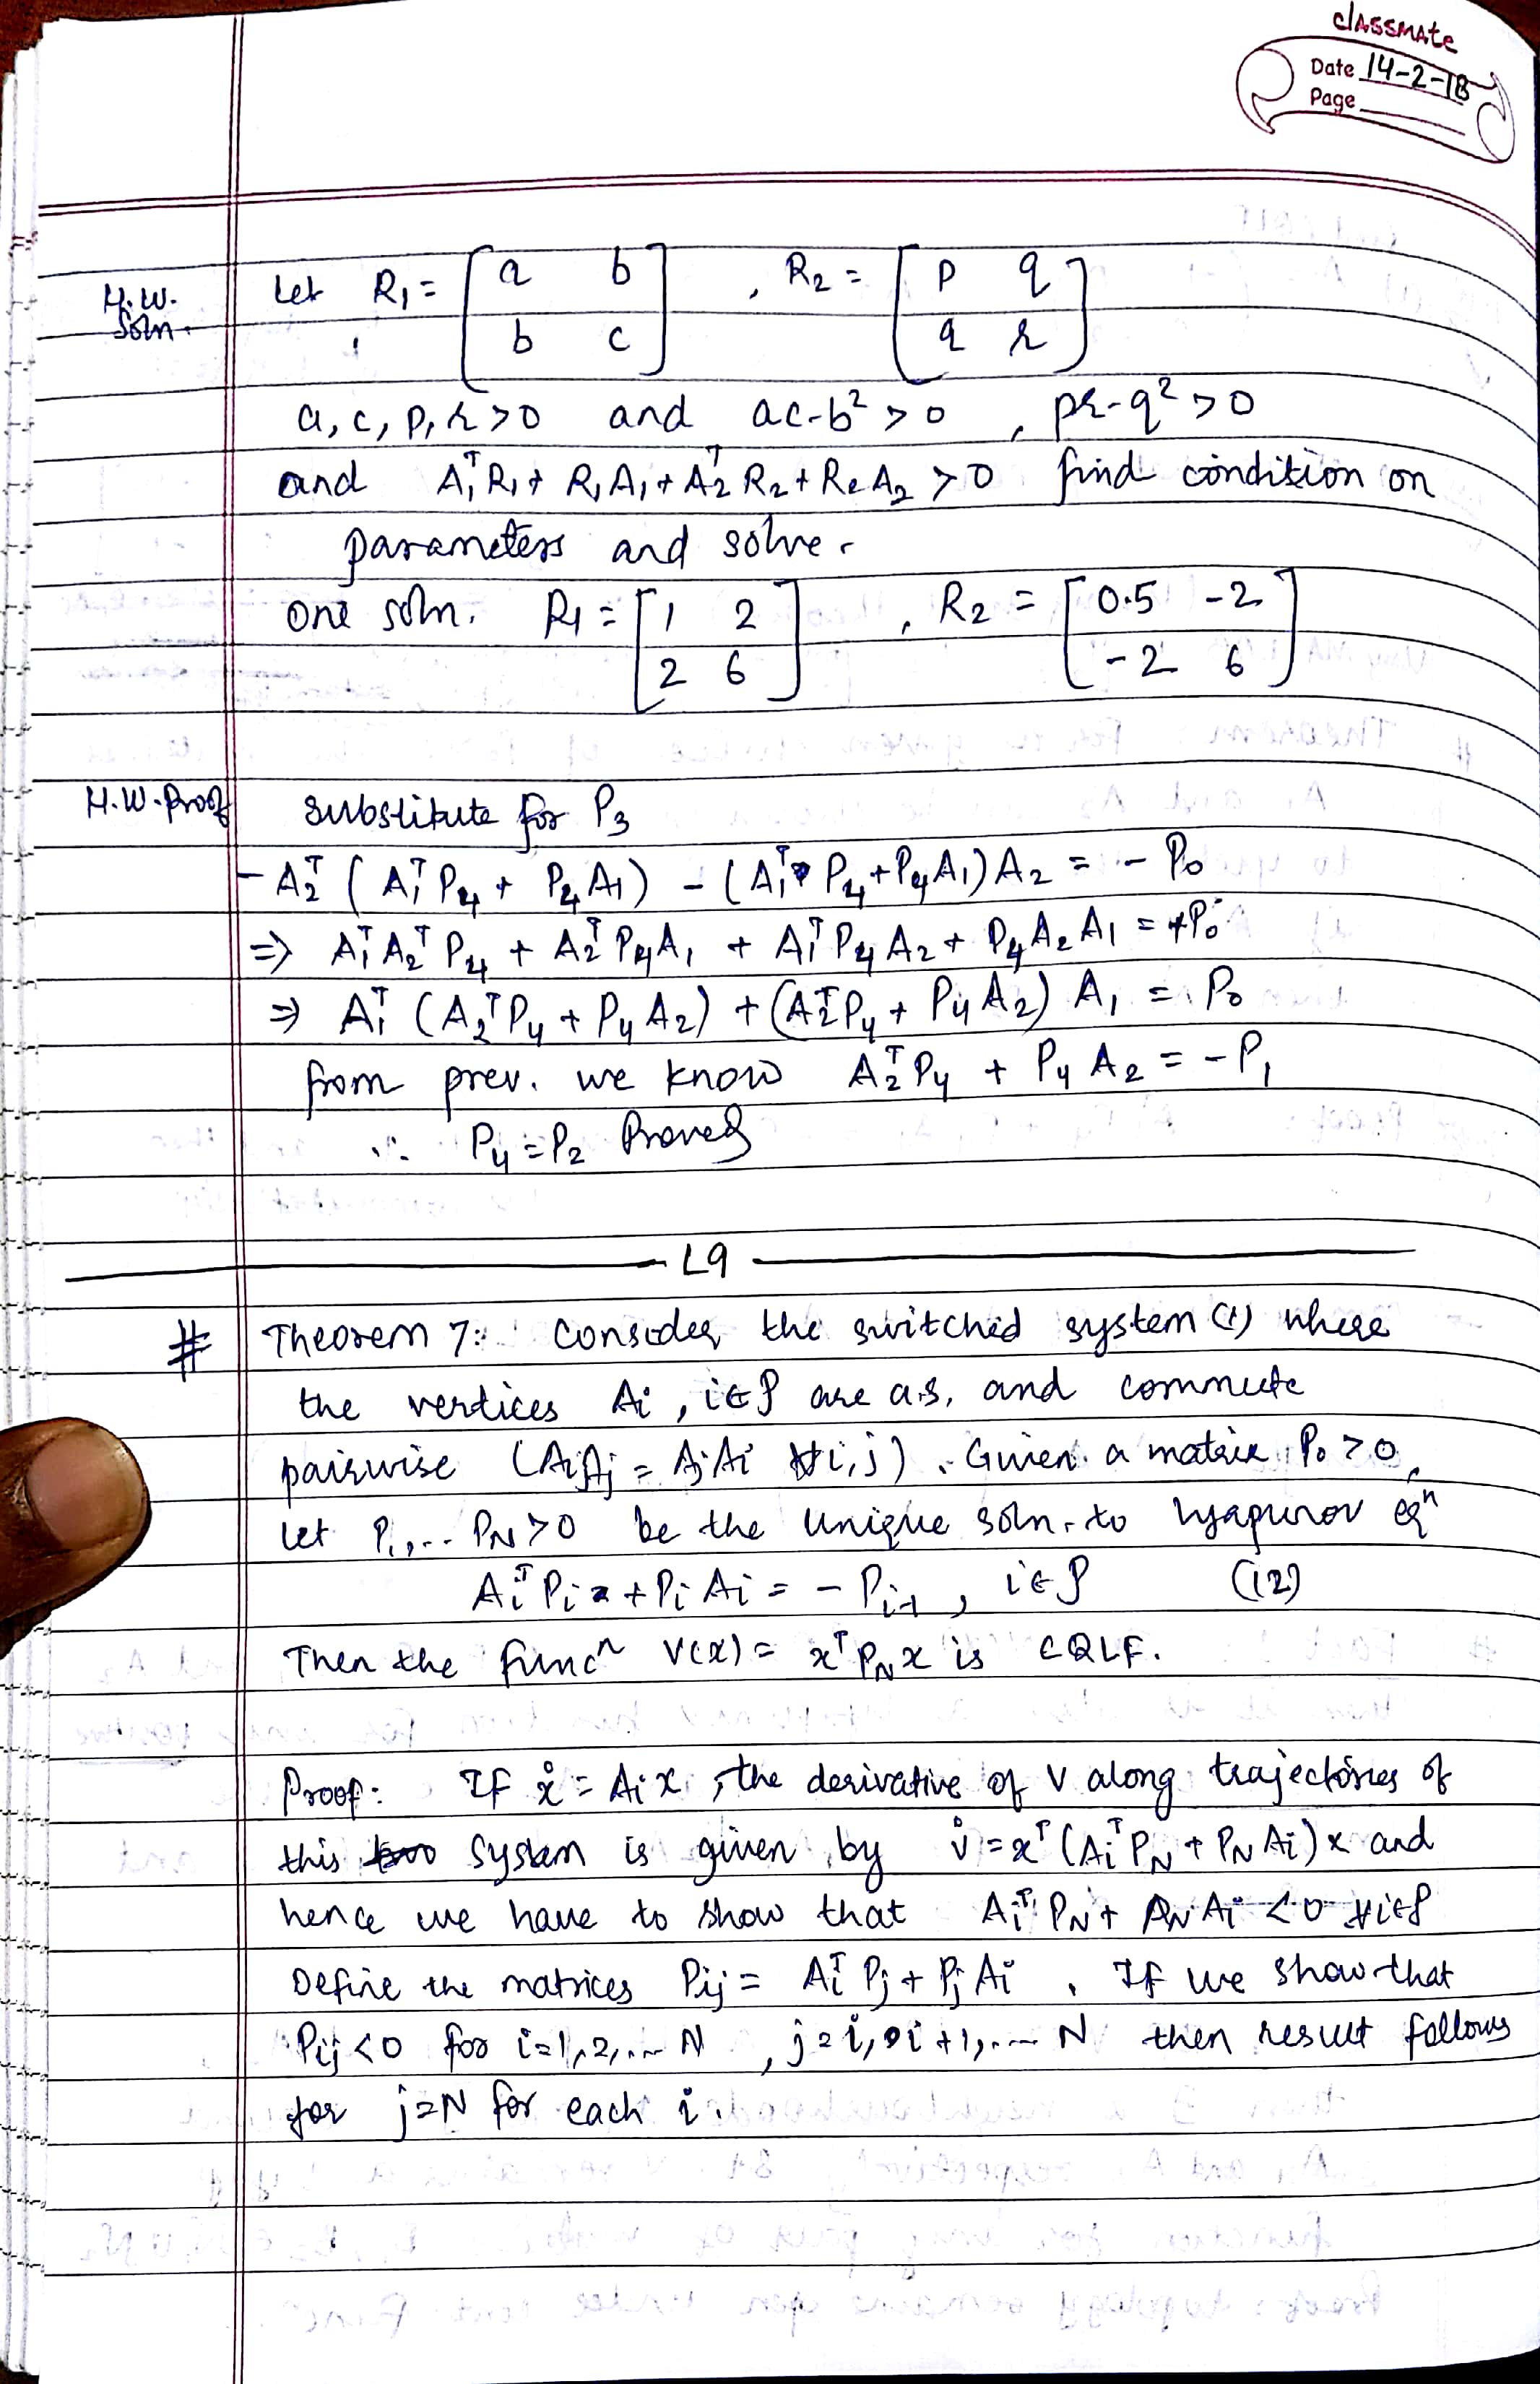 classmate
Date 14-2-18
Page
H.W. Soln.
Let R₁ = [a b; b c] , R₂ = [p q; q r]
a, c, p, r > 0 and ac-b² > 0 , pr-q² > 0
and A₁ᵀR₁ + R₁A₁ + A₂ᵀR₂ + R₂A₂ > 0 find condition on
parameters and solve.
one soln. R₁ = [1 2; 2 6] , R₂ = [0.5 -2; -2 6]
H.W. Proof
substitute for P₃
- A₂ᵀ (A₁ᵀP₄ + P₄A₁) - (A₁ᵀP₄ + P₄A₁)A₂ = - P₀
⇒ A₁ᵀA₂ᵀP₄ + A₂ᵀP₄A₁ + A₁ᵀP₄A₂ + P₄A₂A₁ = +P₀
⇒ A₁ᵀ (A₂ᵀP₄ + P₄A₂) + (A₂ᵀP₄ + P₄A₂) A₁ = P₀
from prev. we know A₂ᵀP₄ + P₄A₂ = -P₁
∴ P₄ = P₂ Proved
L9
# Theorem 7: Consider the switched system (1) where
the vertices Ai , i∈P are a.s. and commute
pairwise (AiAj = AjAi ∀i,j) . Given a matrix P₀ > 0,
let P₁,... PN > 0 be the unique soln. to lyapunov eqⁿ
AiᵀPi + PiAi = - Pi-1 , i∈P (12)
Then the funcⁿ V(x) = xᵀPNx is CQLF.
Proof: If ẋ = Aix , the derivative of V along trajectories of
this system is given by v̇ = xᵀ(AiᵀPN + PNAi)x and
hence we have to show that AiᵀPN + PNAi < 0 ∀i∈P
Define the matrices Pij = AiᵀPj + PjAi . If we show that
Pij < 0 for i=1,2,... N , j = i, i+1,... N then result follows
for j=N for each i.